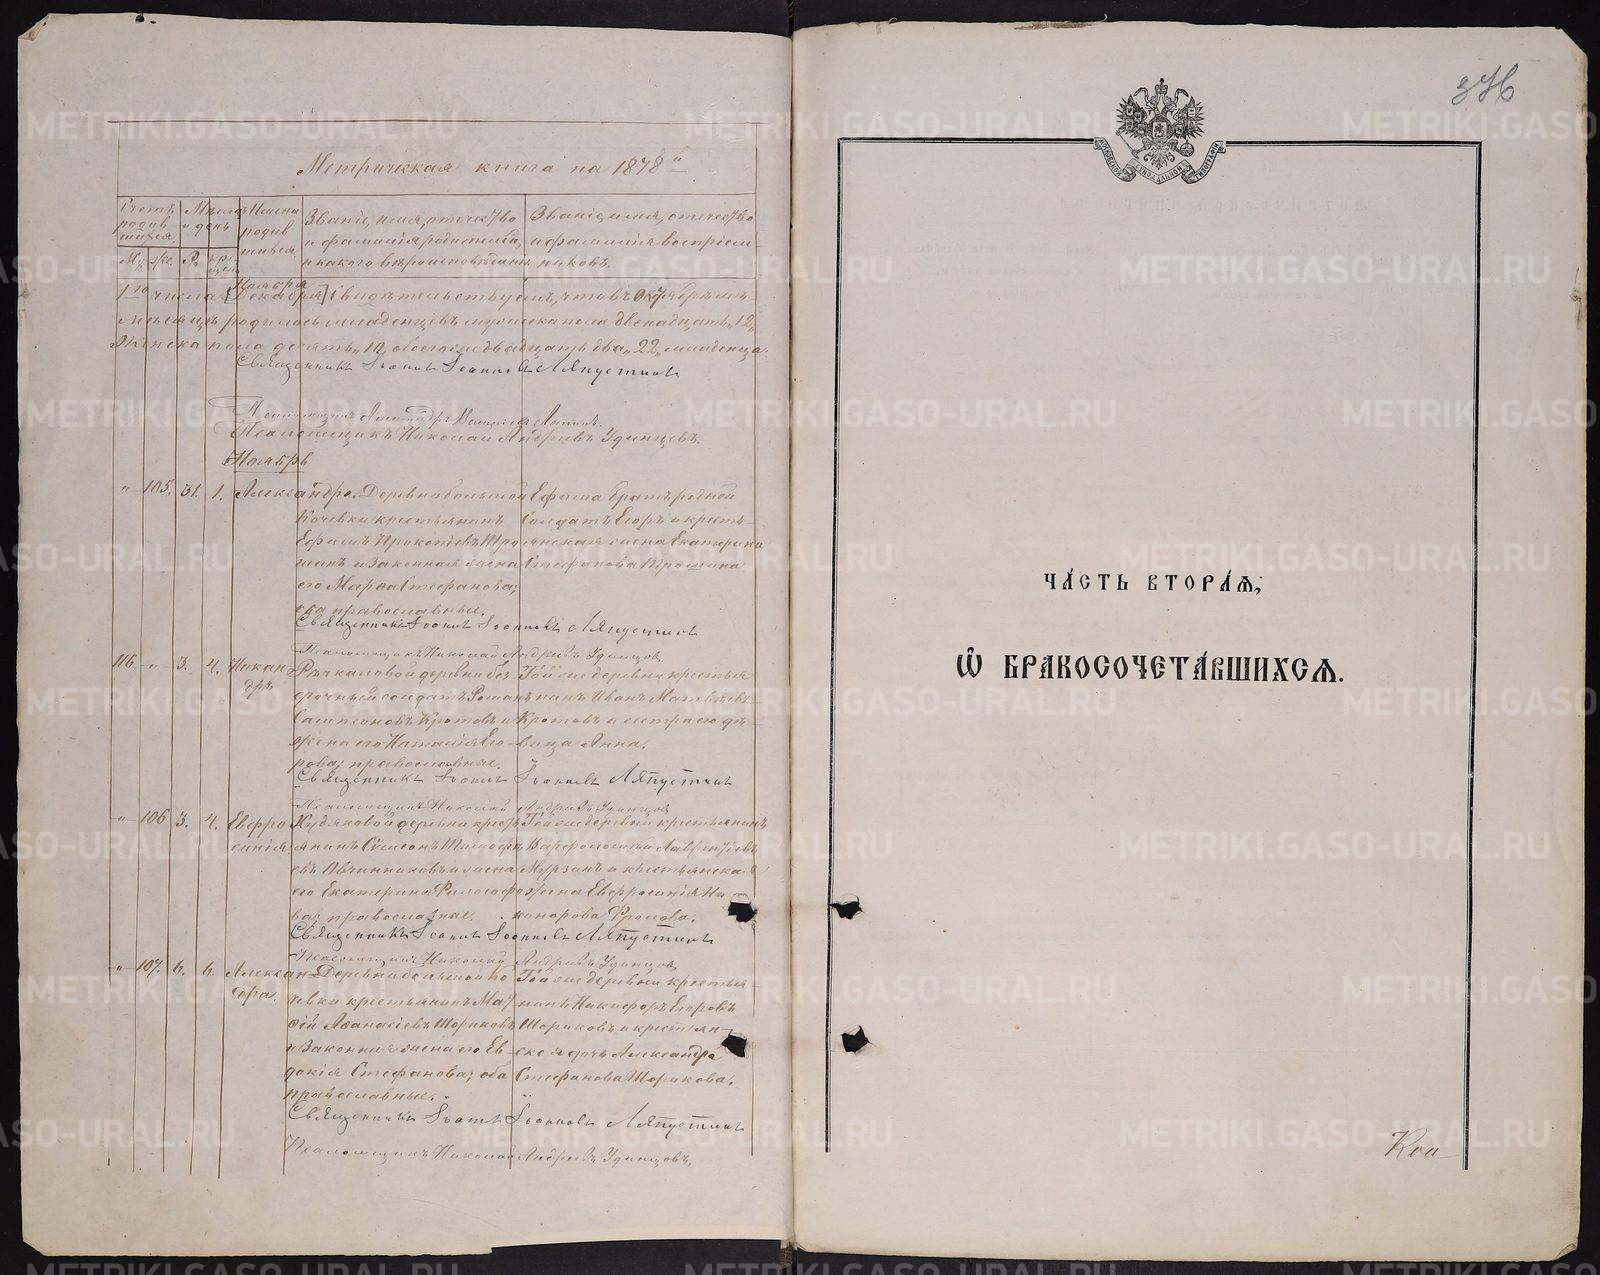 Метрическая книга на 1878 й
Счетъ родив шихся
М. ж.
Мѣсяцъ и день
Р. Кре щен.
Имена родив шихся
Званіе, имя, отечество
и фамилія родителей,
и какого вѣроисповѣданія
Званіе, имя, отечество
и фамилія воспріем-
никовъ.
Ноября
1го числа [Декабря] Свидѣтельствуемъ, что въ Октябрѣ
мѣсяцѣ родилось младенцевъ мужеска пола двенадцать „12„
Женска пола десять „10„ обоего двадцать два „22„ младенца.
Священникъ Іоаннъ Іоанновъ Ляпустинъ
Псаломщикъ
Псаломщикъ Николай Андреевъ Удинцевъ.
Ноябрь
„ 105. 31. 1. Александра.
Деревни большой
Кочевки крестьянинъ
Ефимъ Прокопьевъ Тро
шинъ и законная жена
его Марѳа Стефанова;
оба православные.
Ефима братъ родной
Солдатъ Егоръ и кресть-
янская жена Екатерина
Стефанова Трошина
Священникъ Іоаннъ Іоанновъ Ляпустинъ
Псаломщикъ Николай Андреевъ Удинцовъ
116. „ 3. 4. Никан
дръ
Рѣчкаловой деревни без
срочный солдатъ Романъ
Сампсоновъ Кротовъ и
жена его Наталія Его-
рова; православные.
Той же деревни крестья
нинъ Иванъ Матвѣевъ
Кротовъ и сестра его дѣ-
вица Анна.
Священникъ Іоаннъ Іоанновъ Ляпустинъ
Псаломщикъ Николай Андреевъ Удинцовъ
„ 106 3. 4. Евфро
синія
Худяковой деревни кресть
янинъ Сѵмеонъ Тимофе
евъ Овчинниковъ и жена
его Екатерина
ва; православные.
Той же деревни крестьянинъ
Варфоломей Лаврентьевъ
Мурзинъ и крестьянская
жена Евфросинія Ни
канорова Фролова.
Священникъ Іоаннъ Іоанновъ Ляпустинъ
Псаломщикъ Николай Андреевъ Удинцовъ
„ 107. 6. 6. Алексан
дра.
Деревни большой Ко
чевки крестьянинъ Мат
ѳій Аѳанасіевъ Шориковъ
и законная жена его Ев-
докія Стефанова; оба
православные.
Той же деревни крестья-
нинъ Никифоръ Егоровъ
Шориковъ и крестьян-
ская дочь Александра
Стефанова Шорикова.
Священникъ Іоаннъ Іоанновъ Ляпустинъ
Псаломщикъ Николай Андреевъ Удинцовъ,
376
МОСКОВСКОЙ СѴНОДАЛЬНОЙ ТИПОГРАФІИ
ЧАСТЬ ВТОРАѦ,
Ѡ БРАКОСОЧЕТАВШИХСѦ.
METRIKI.GASO-URAL.RU